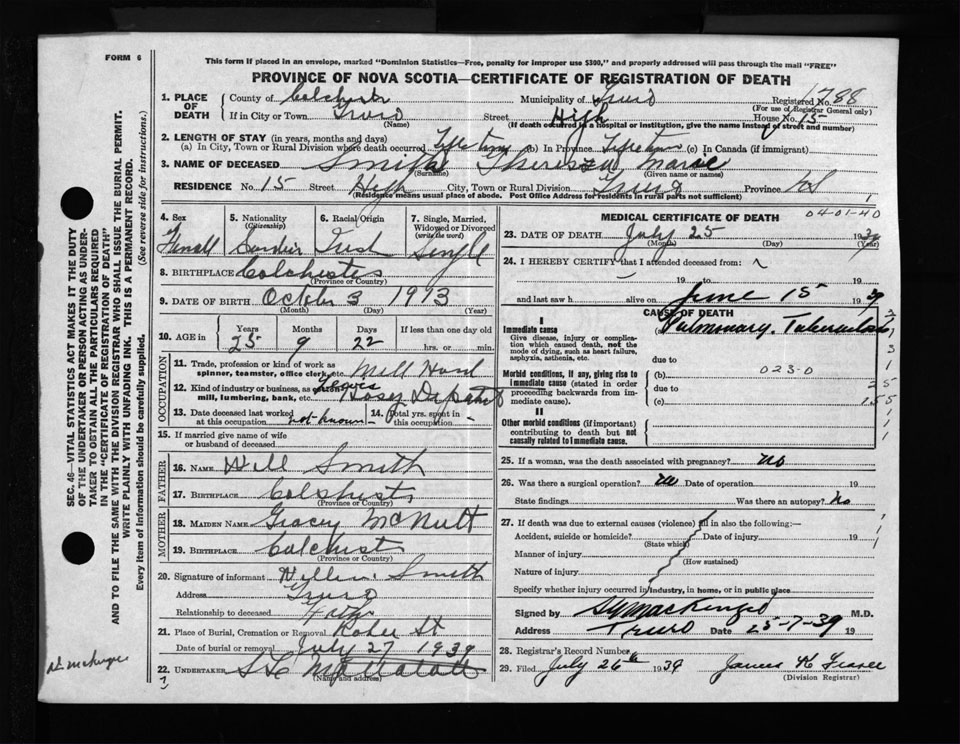 FORM 6
This form if placed in an envelope, marked "Dominion Statistics—Free, penalty for improper use $300," and properly addressed will pass through the mail "FREE"
PROVINCE OF NOVA SCOTIA—CERTIFICATE OF REGISTRATION OF DEATH
1. PLACE OF DEATH
County of Colchester Municipality of Truro Registered No. 1788
(For use of Registrar General only)
If in City or Town Truro Street High House No. 15
(Name) (If death occurred in a hospital or institution, give the name instead of street and number)
2. LENGTH OF STAY (in years, months and days)
(a) In City, Town or Rural Division where death occurred Lifetime (b) In Province Lifetime (c) In Canada (if immigrant)
3. NAME OF DECEASED Smith Theresa Marie
(Surname) (Given name or names)
RESIDENCE No. 15 Street High City, Town or Rural Division Truro Province NS
(Residence means usual place of abode. Post Office Address for residents in rural parts not sufficient)
4. Sex 5. Nationality (Citizenship) 6. Racial Origin 7. Single, Married, Widowed or Divorced (write the word)
Irish Single
8. BIRTHPLACE Colchester
(Province or Country)
9. DATE OF BIRTH October 3 1913
(Month) (Day) (Year)
10. AGE in Years Months Days If less than one day old
25 9 22 hrs. or min.
OCCUPATION
11. Trade, profession or kind of work as spinner, teamster, office clerk, etc. Mill Hand
12. Kind of industry or business, as mill, lumbering, bank, etc.
13. Date deceased last worked at this occupation not known 14. Total yrs. spent in this occupation -
15. If married give name of wife or husband of deceased
FATHER
16. NAME Will Smith
17. BIRTHPLACE Colchester
(Province or Country)
MOTHER
18. MAIDEN NAME Gracey McNutt
19. BIRTHPLACE Colchester
(Province or Country)
20. Signature of informant Smith
Address Truro
Relationship to deceased Father
21. Place of Burial, Cremation or Removal St
Date of burial or removal July 27 1939
22. UNDERTAKER
(Name and address)
MEDICAL CERTIFICATE OF DEATH
04-01-40
23. DATE OF DEATH July 25 1939
(Month) (Day) (Year)
24. I HEREBY CERTIFY that I attended deceased from:
19 to 19
and last saw h alive on June 15 19
CAUSE OF DEATH
I
Immediate cause (a) Pulmonary Tuberculosis
Give disease, injury or complication which caused death, not the mode of dying, such as heart failure, asphyxia, asthenia, etc.
due to
Morbid conditions, if any, giving rise to immediate cause (stated in order proceeding backwards from immediate cause).
(b) 023-0
due to
(c)
II
Other morbid conditions (if important) contributing to death but not causally related to immediate cause.
25. If a woman, was the death associated with pregnancy? no
26. Was there a surgical operation? no Date of operation 19
State findings Was there an autopsy? No
27. If death was due to external causes (violence) fill in also the following:—
Accident, suicide or homicide? Date of injury 19
(State which)
Manner of injury
(How sustained)
Nature of injury
Specify whether injury occurred in industry, in home, or in public place
Signed by MacKenzie M.D.
Address Truro Date 25-7-39 19
28. Registrar's Record Number
29. Filed July 26th 1939 James
(Division Registrar)
SEC. 46—VITAL STATISTICS ACT MAKES IT THE DUTY OF THE UNDERTAKER OR PERSON ACTING AS UNDERTAKER TO OBTAIN ALL THE PARTICULARS REQUIRED IN THE "CERTIFICATE OF REGISTRATION OF DEATH" AND TO FILE THE SAME WITH THE DIVISION REGISTRAR WHO SHALL ISSUE THE BURIAL PERMIT.
WRITE PLAINLY WITH UNFADING INK. THIS IS A PERMANENT RECORD.
Every item of information should be carefully supplied. (See reverse side for instructions.)